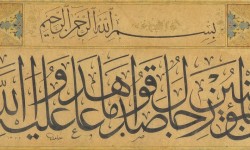 بسم الله الرحمن الرحيم
المؤمنين رجال صدقوا ما عاهدوا الله عليه